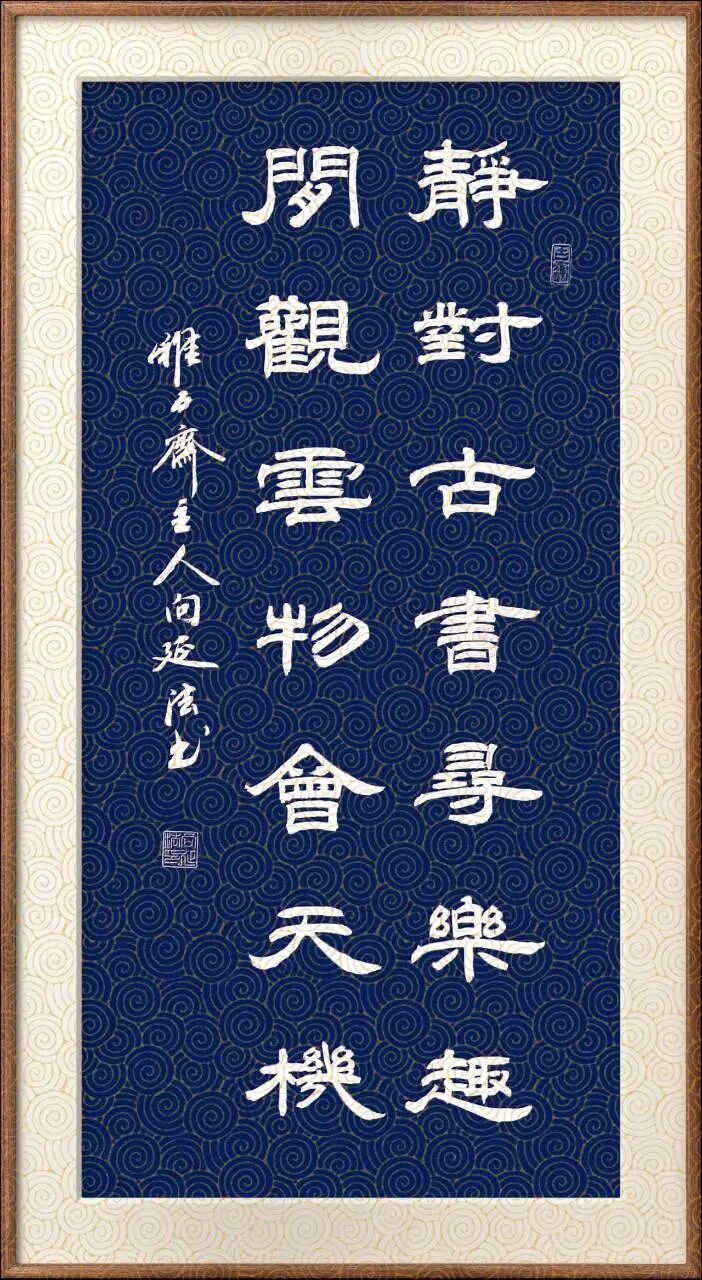 靜對古書尋樂趣
閒觀雲物會天機
雅石齋主人向延法书